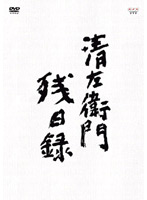 DVD
NHK
清左衛門
残日録